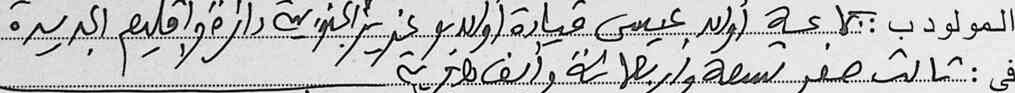 المولود ب : جماعة أولاد عيسى قيادة أولاد بوعزيز الجنوبية دائرة وإقليم الجديدة
في : ثالث صفر تسعة وأربعمائة وألف هجرية